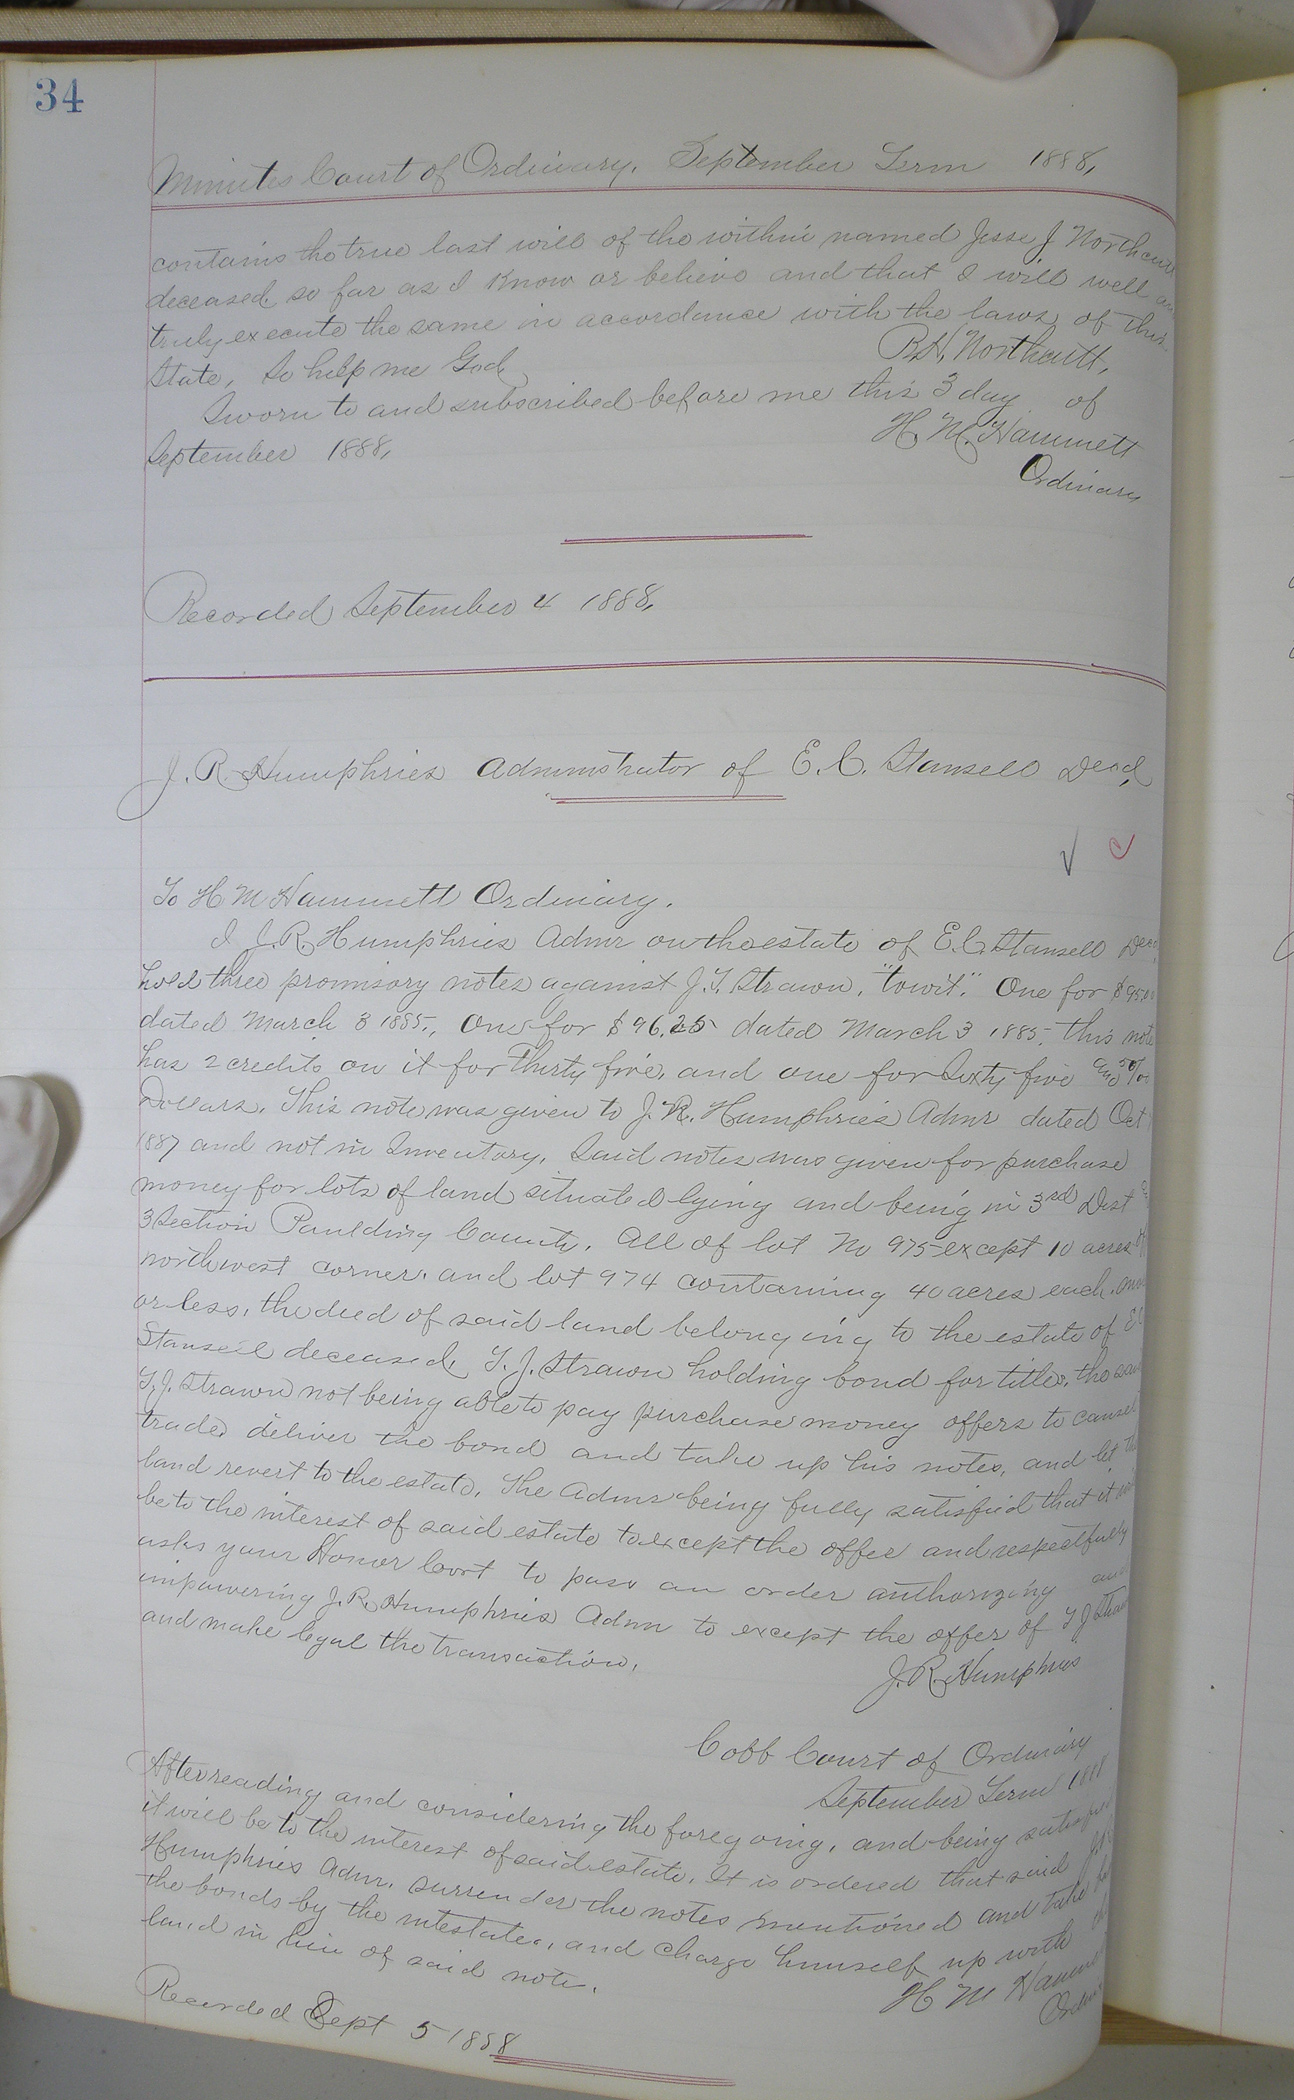 34
Minutes Court of Ordinary. September Term 1888,
contains the true last will of the within named Jesse J Northcutt
deceased so far as I know or believe and that I will well an
truly execute the same in accordance with the laws of this
State, So help me God
B.H. Northcutt,
Sworn to and subscribed before me this 3 day of
September 1888,
H. M. Hammett
Ordinary
Recorded September 4 1888,
J. R. Humphries Administrator of E. C. Stansell Decd,
To H M Hammett Ordinary.
I J. R. Humphries Admr on the estate of E. C. Stansell Decd
hold three promisory notes against J. T. Strawn. "towit." One for $95.00
dated March 3 1885., One for $96.25 dated March 3 1885, this note
has 2 credits on it for Thirty five, and one for Sixty five and 50/00
Dollars. This note was given to J. R. Humphries Admr dated Oct
1887 and not in Inventory. Said notes was given for purchase
money for lots of land situated lying and being in 3rd Dist
3 Section Paulding County. All of lot No 975 except 10 acres of
northwest corner. and lot 974 containing 40 acres each, more
or less, the deed of said land belonging to the estate of E C
Stansell deceased, T. J. Strawn holding bond for titles, the said
T. J. Strawn not being able to pay purchase money offers to cansel
trade, deliver the bond and take up his notes, and let the
land revert to the estate, The Admr being fully satisfied that it will
be to the interest of said estate to except the offer and respectfully
asks your Honor Cort to pass an order authorizing and
impowering J. R. Humphries Admr to except the offer of T J Strawn
and make legal the transaction.
J. R. Humphries
Cobb Court of Ordinary
September Term 1888
After reading and considering the foregoing, and being satisfied
it will be to the interest of said estate. It is ordered that said J. R.
Humphries Adm. surrender the notes mentioned and take
the bonds by the intestate, and charge himself up with the
land in lieu of said note.
H M Hammett
Ordinary
Recorded Sept 5 1888